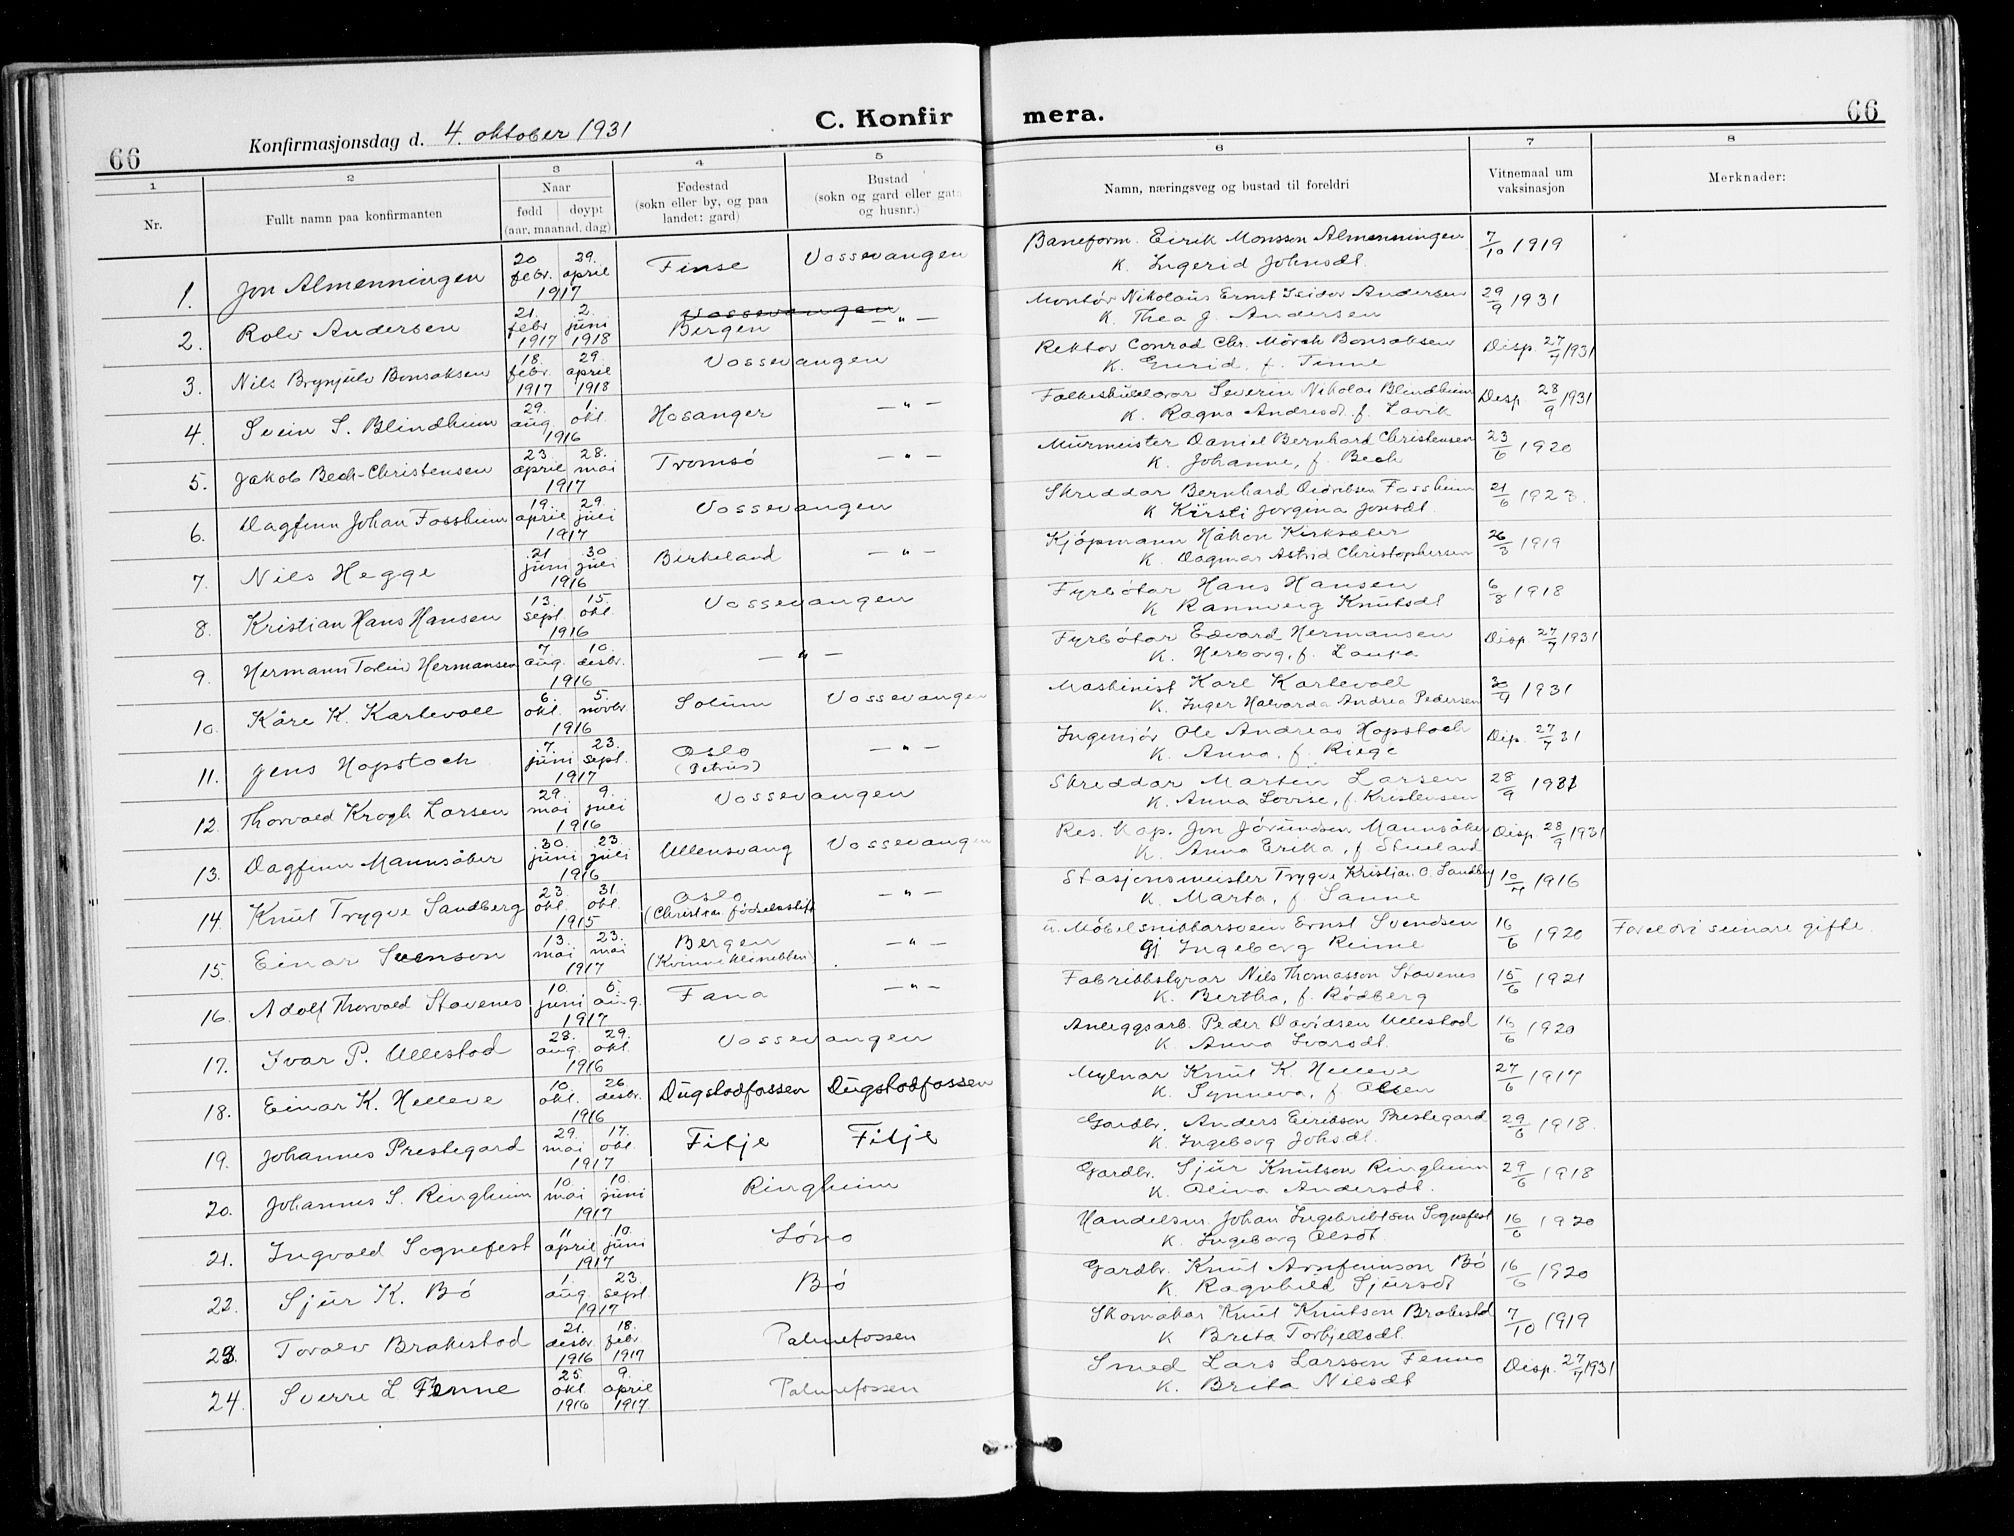 66
Konfirmasjonsdag d. 4. oktober 1931
C. Konfirmera.
66
1 2 3 4 5 6 7 8
Nr.
Fullt namn paa konfirmanten
Naar
fødd døypt
(aar. maanad. dag)
Fødestad
(sokn eller by, og paa
landet: gard)
Bustad
(sokn og gard eller gata
og husnr.)
Namn, næringsveg og bustad til foreldri
Vitnemaal um
vaksinasjon
Merknader:
1. Jon Almenningen 20 febr. 29. april 1917 Finse Vossevangen Baneform. Eirik Monsson Almenningen 7/10 1919
K. Ingerid Johnsdt.
2. Rolv Andersen 21. febr. 1917 2. juni 1918 Vossevangen Bergen —"— Montør Nikolaus Ernst Isidor Andersen 29/9 1931
K. Thea J. Andersen
3. Nils Brynjulv Bonsaksen 18. febr. 1917 29. april 1918 Vossevangen Rektor Conrad Chr. Mörch Bonsaksen Disp. 27/7 1931
K. Gurid, f. Finne
4. Svein S. Blindheim 29. aug. 1. okt. 1916 Hosanger —"— Folkeskulelærar Severin Nikolai Blindheim Disp. 28/9 1931
K. Ragna Andresdt. f. Lavik
5. Jakob Bech-Christensen 23. april 28. mai 1917 Tromsö —"— Murmeister Daniel Bernhard Christensen 23/6 1920
K. Johanne, f. Bech
6. Dagfinn Johan Fossheim 19. april 29. juli 1917 Vossevangen Skreddar Bernhard Fossheim 21/6 1923.
K. Kirsti Jorgina Jonsdt.
7. Nils Hegge 21 juni 30 juli 1916 Birkeland —"— Kjöpmann Håkon Kirksæter 26/3 1919
K. Dagmar Astrid Christophersen
8. Kristian Hans Hansen 13. sept. 15. okt. 1916 Vossevangen Fyrbötar Hans Hansen 6/8 1918
K. Rannveig Knutsdt
9. Hermann Torleiv Hermansen 7 aug. 10. desbr. 1916 —"— Fyrbötar Edvard Hermansen Disp. 27/7 1931
K. Herborg, f.
10. Kåre K. Karlevoll 6. okt. 5. novbr. 1916 Solum Vossevangen Maskinist Karl Karlevoll 30/4 1931
K. Inger Halvarda Andrea Pedersen
11. Jens Hopstock 7. juni 23. sept. 1917 Oslo (Petrus) —"— Ingeniör Ole Andreas Hopstock Disp. 27/7 31
K. Anna, f. Riege
12. Thorvald Krogh Larsen 29. mai 9. juli 1916 Vossevangen Skreddar Martin Larsen 28/9 1931
K. Anna Lovise, f. Kristensen
13. Dagfinn Mannsåker 30. juni 23 juli 1916 Ullensvang Vossevangen Res. Kap. Jon Jörundson Mannsåker Disp. 28/9 1931
K. Anna Erika, f.
14. Knut Trygve Sandberg 23. okt. 31. okt. 1915 Oslo (Christian fødselsstift —"— Stasjonsmeister Trygve Kristian O. Sandberg 10/4 1916
K. Marta, f. Sanne
15. Einar Svenson 13. mai 23. mai 1917 Bergen (Kvinneklinikken) —"— u. Möbelsnikkarsvein Ernst Svendsen 16/6 1920 Foreldri seinare gifte
gj Ingeborg Reime
16. Adolf Thorvald Stavenes 10. juni 5. aug. 1917 Fana —"— Fabrikkstyrar Nils Thomasson Stavenes 15/6 1921
K. Bertha, f. Rödberg
17. Ivar P. Ullestad 28. aug. 29. okt. 1916 Vossevangen Anleggsarb. Peder Davidsen Ullestad 16/6 1920
K. Anna Ivarsdt.
18. Einar K. Helleve 10. okt. 26. desbr. 1916 Dugstadfossen Dugstadfossen Mylnar Knut K. Helleve 27/6 1917
K. Synneva, f. Olsen
19. Johannes Prestegard 29. mai 17. okt. 1917 Fitje Fitje Gardbr. Anders Eirikson Prestegard 29/6 1918.
K. Ingeborg Johsdt.
20. Johannes S. Ringheim 10. mai 10. juni 1917 Ringheim Gardbr. Sjur Knutson Ringheim 29/6 1918
K. Olina Andersdt.
21. Ingvald Sognefest 11 april 10. juni 1917 Löno Handelsm. Johan Ingebriktsen Sognefest 16/6 1920
K. Ingeborg Olsdt.
22. Sjur K. Bö 1. aug. 23. sept 1917 Bö Gardbr. Knut Arnfinnson Bö 16/6 1920
K. Ragnhild Sjursdt
23. Toralv Brakestad 21. desbr. 1916 18. febr. 1917 Palmefossen Skomakar Knut Knutson Brakestad 7/10 1919
K Brita Torkjellsdt.
24. Sverre L Finne 25 okt 1916 9. april 1917. Palmefossen Smed Lars Larsson Finne Disp. 27/7 1931
K. Brita Nilsdt